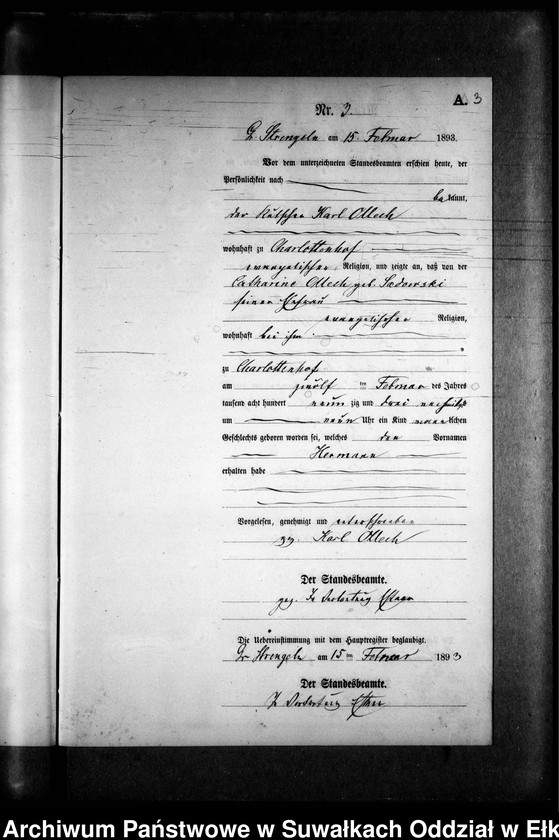 A. 3
Nr. 3.
Gr Strengeln am 15. Februar 1893.
Vor dem unterzeichneten Standesbeamten erschien heute, der
Persönlichkeit nach
bekannt,
der Karl Olleck
wohnhaft zu Charlottenhof
evangelischer Religion, und zeigte an, daß von der
Catharine Olleck geb. Sadowski
seiner Ehefrau
evangelischer Religion,
wohnhaft bei ihm
zu Charlottenhof
am zwölf ten Februar des Jahres
tausend acht hundert neun zig und drei nachmittags
um neun Uhr ein Kind männlichen
Geschlechts geboren worden sei, welches den Vornamen
Hermann
erhalten habe
Vorgelesen, genehmigt und unterschrieben
gez. Karl Olleck
Der Standesbeamte.
gez. In Vertretung
Die Uebereinstimmung mit dem Hauptregister beglaubigt.
Gr Strengeln am 15 ten Februar 1893
Der Standesbeamte.
In Vertretung
Archiwum Państwowe w Suwałkach Oddział w Ełk